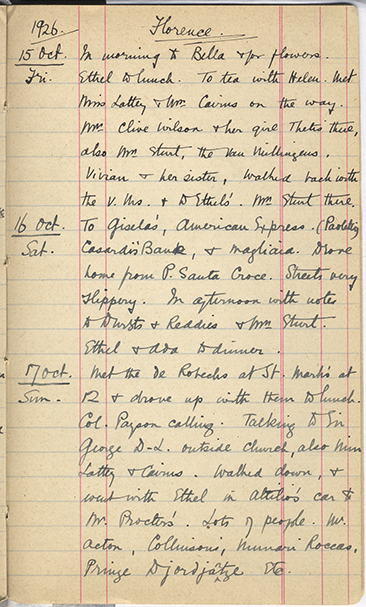 1926. Florence.
15 Oct. In morning to Bella & for flowers.
Fri. Ethel to lunch. To tea with Helen. Met
Miss Lattey & Mrs. Cairns on the way.
Mrs. Clive Wilson & her girl Thetis there,
also Mrs. Sturt, the Van Millingens.
Vivian & her sister, walked back with
the V. Ms. & to Ethel's. Mrs. Sturt there.
16 Oct. To Gisela's, American Express. (Paoletti)
Sat. Casardi's Bank, & Magliaia. Drove
home from P. Santa Croce. Streets very
slippery. In afternoon with notes
to Dursts & Reddies & Mrs Sturt.
Ethel & Ada to dinner.
17 Oct. Met the De Robecks at St. Mark's at
Sun. 12 & drove up with them to lunch.
Col. Pagan calling. Talking to Sir
George D-L. outside church, also Miss
Lattey & Cairns. Walked down, &
went with Ethel in Attilio's car to
Mr. Procters'. Lots of people. Mr.
Acton, Collinsons, Munari Roccas,
Prince Djordjätze Etc.